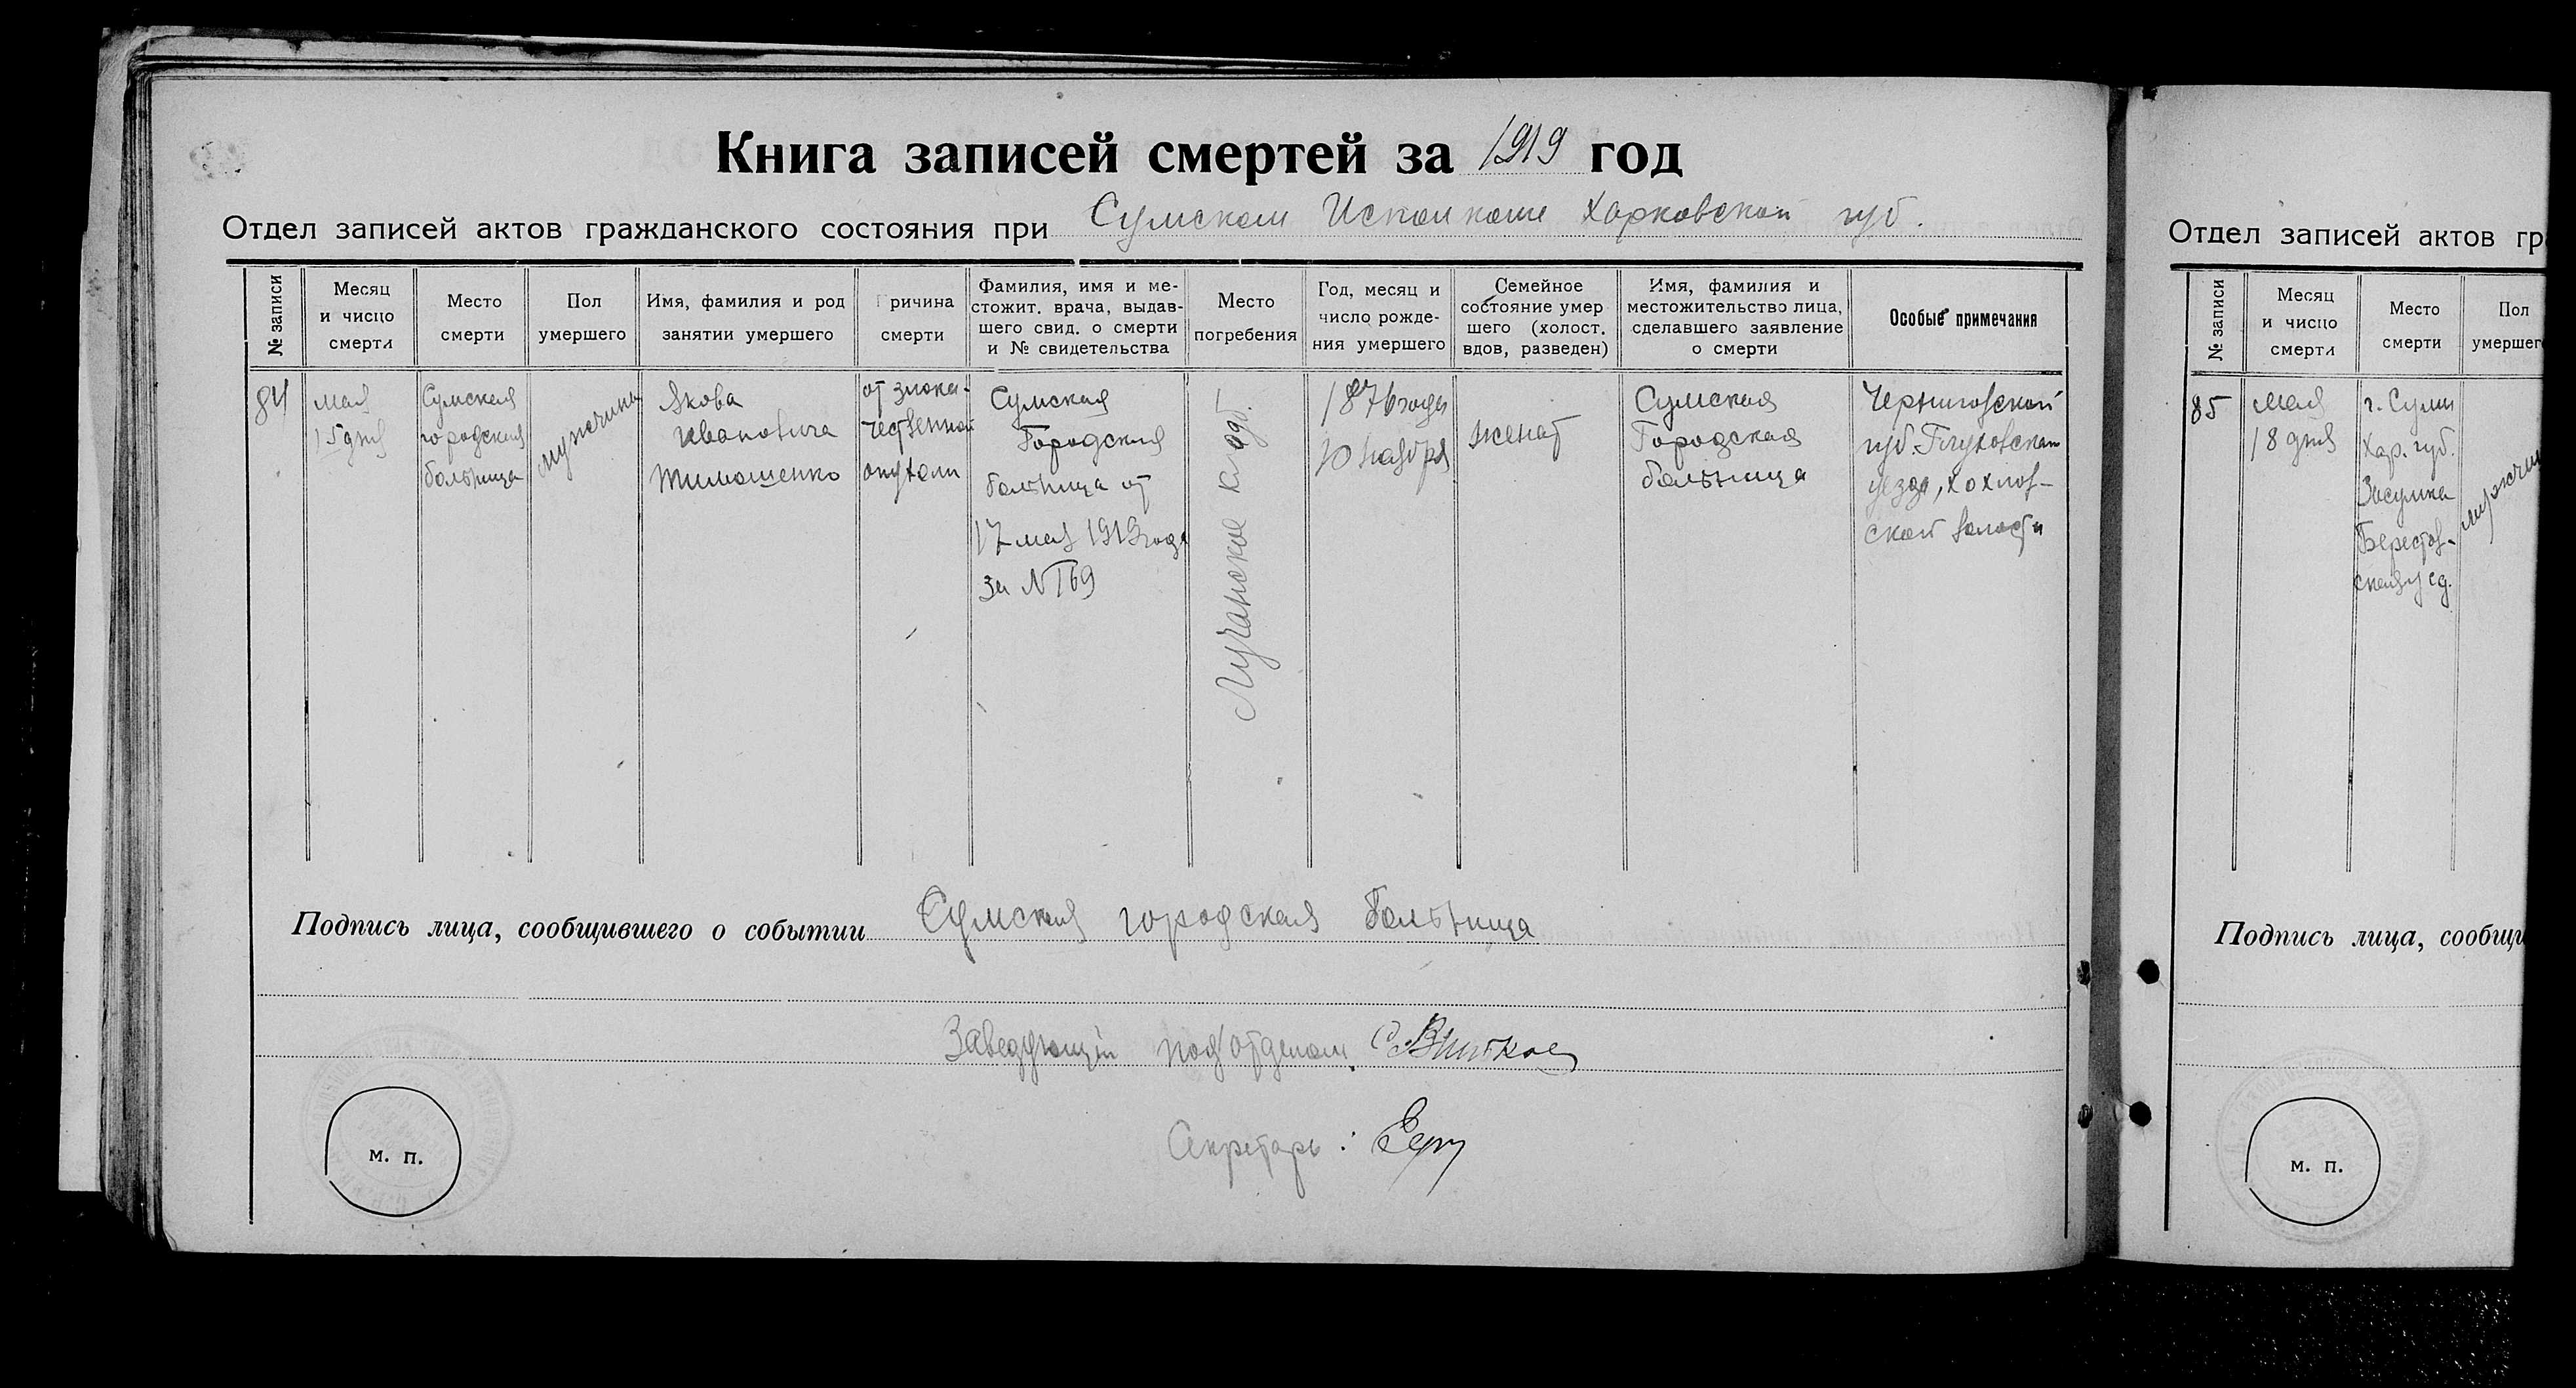 Книга записей смертей за 1919 год
Отдел записей актов гражданского состояния при Сумском Исполкоме Харковской губ.
№ записи
Месяц
и число
смерти
Место
смерти
Пол
умершего
Имя, фамилия и род
занятии умершего
Причина
смерти
Фамилия, имя и ме-
стожит. врача, выдав-
шего свид. о смерти
и № свидетельства
Место
погребения
Год, месяц и
число рожде-
ния умершего
Семейное
состояние умер
шего (холост.
вдов, разведен)
Имя, фамилия и
местожительство лица,
сделавшего заявление
о смерти
Особые примечания
84
мая
15 дня
Сумская
городская
больница
мужчина
Якова
Ивановича
Тимошенко
от злока-
чественной
опухоли
Сумская
Городская
больница от
17 мая 1919 года
за № 169
Лучанское кладб.
1876 года
ноября
женат
Сумская
Городская
больница
Черниговской
губ. Глуховского
уезда, Хохлов-
ской волости
Подпись лица, сообщившего о событии Сумская городская больница
Заведующий подотделом
Секретарь:
м. п.
Отдел записей актов гр
№ записи
Месяц
и число
смерти
Место
смерти
Пол
умершег
85
мая
18 дня
г. Сумы
Хар. губ.
Засумка
Берестов-
ская ул.
мужчин
Подпись лица, сообщи
м. п.